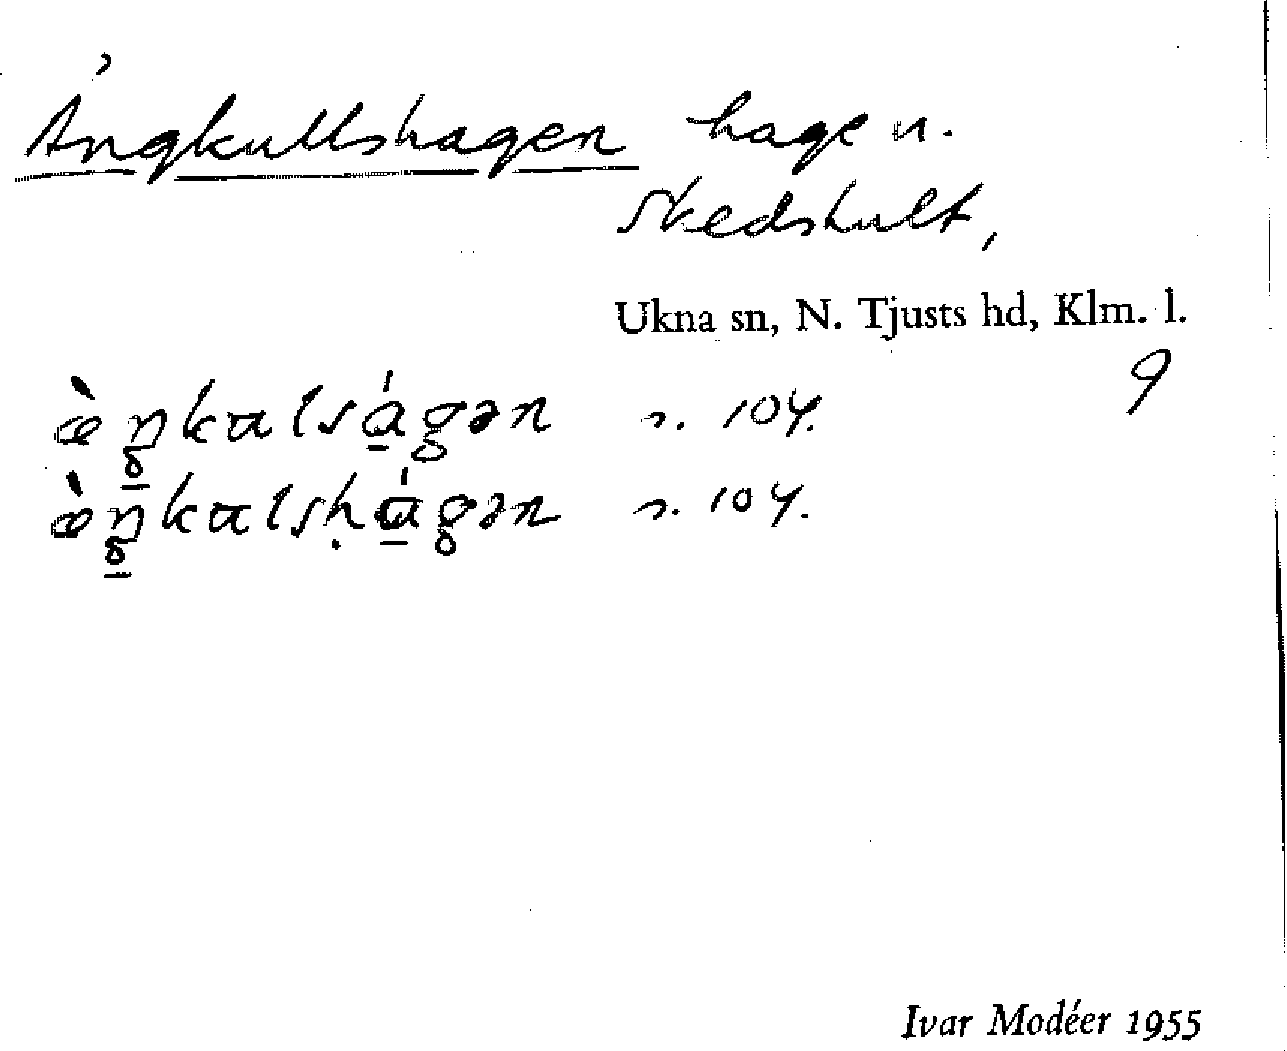 Ängkullshagen hage u.
Skedshult,
Ukna sn, N. Tjusts hd, Klm. l.
9
æ̀ŋkalságən s. 104.
æ̀ŋkalsḥágən s. 104.
Ivar Modéer 1955